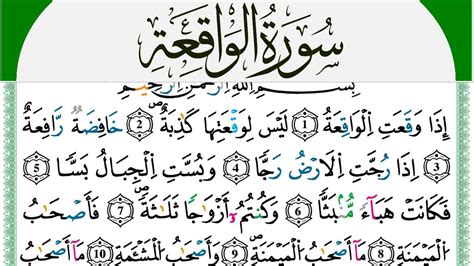 سُورَةُ الْوَاقِعَةِ
بِسْمِ اللهِ الرَّحْمٰنِ الرَّحِيْمِ
إِذَا وَقَعَتِ الْوَاقِعَةُ ١ لَيْسَ لِوَقْعَتِهَا كَاذِبَةٌ ٢ خَافِضَةٌ رَّافِعَةٌ
٣ إِذَا رُجَّتِ الْاَرْضُ رَجًّا ٤ وَبُسَّتِ الْجِبَالُ بَسًّا ٥
فَكَانَتْ هَبَآءً مُّنْبَثًّا ٦ وَكُنْتُمْ أَزْوَاجًا ثَلَاثَةً ٧ فَأَصْحَابُ
الْمَيْمَنَةِ مَآ أَصْحَابُ الْمَيْمَنَةِ ٨ وَأَصْحَابُ الْمَشْئَمَةِ مَآ أَصْحَابُ